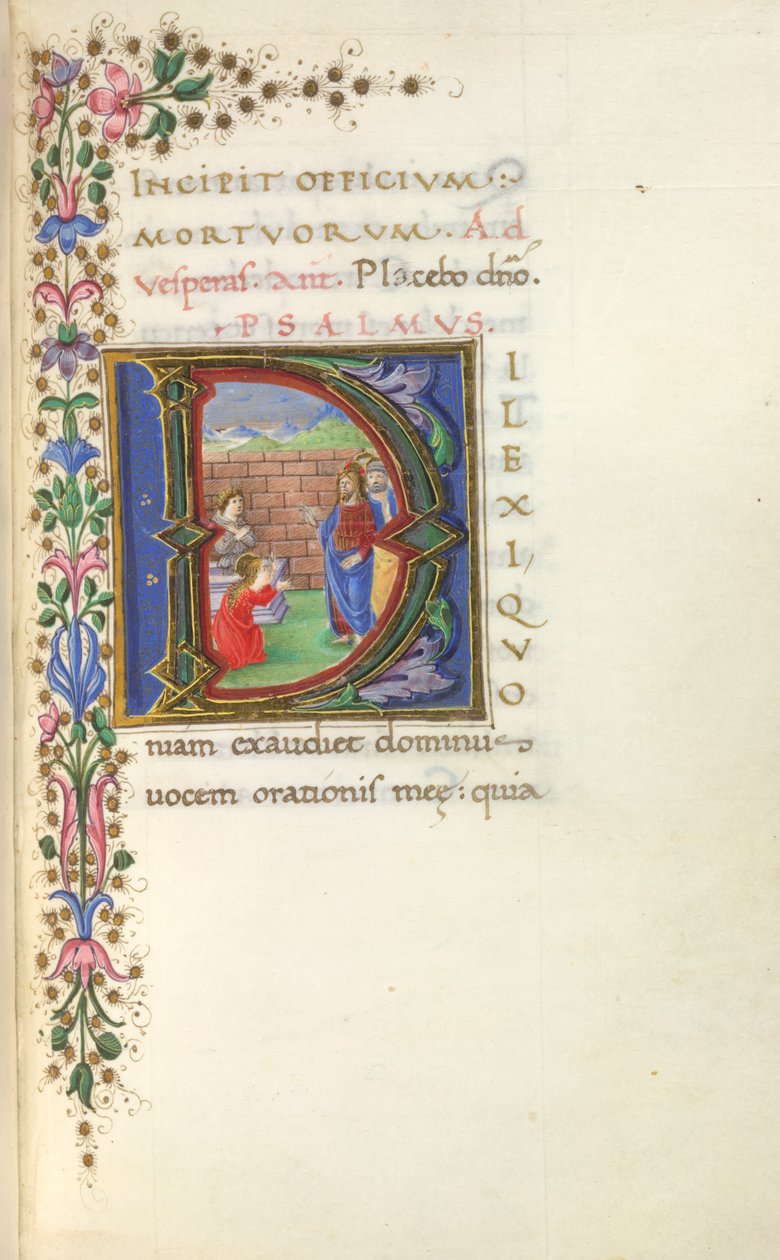 INCIPIT OFFICIVM:~
MORTVORVM. Ad
vesperas. Ant. Placebo dño.
PSALMVS.
D
I
L
E
X
I,
Q
V
O
niam exaudiet dominus
uocem orationis meę: quia